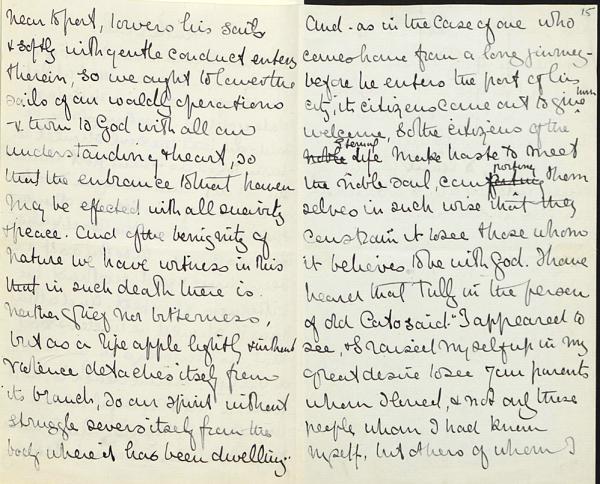 near to port, lowers his sails
& softly with gentle conduct enters
therein, so we ought to lower the
sails of our worldly operations
& turn to God with all our
understanding & heart, so
that the entrance to that haven
may be effected with all suavity
& peace. And of the benignity of
nature we have witness in this
that in such death there is
neither grief nor bitterness,
but as a ripe apple lightly & without
violence detaches itself from
its branch, so our spirit without
struggle severs itself from the
body where it has been dwelling.
15
And - as in the case of one who
comes home from a long journey -
before he enters the port of his
city, its citizens come out to give him
welcome, so the citizens of the
noble eternal life make haste to meet
the noble soul, comporting them
selves in such wise that they
constrain it to see those whom
it believes to be with God. I have
heard that Tully in the person
of old Cato said: "I appeared to
see, & I raised myself up in my
great desire to see your parents
whom I loved, & not only these
people whom I had known
myself, but others of whom I